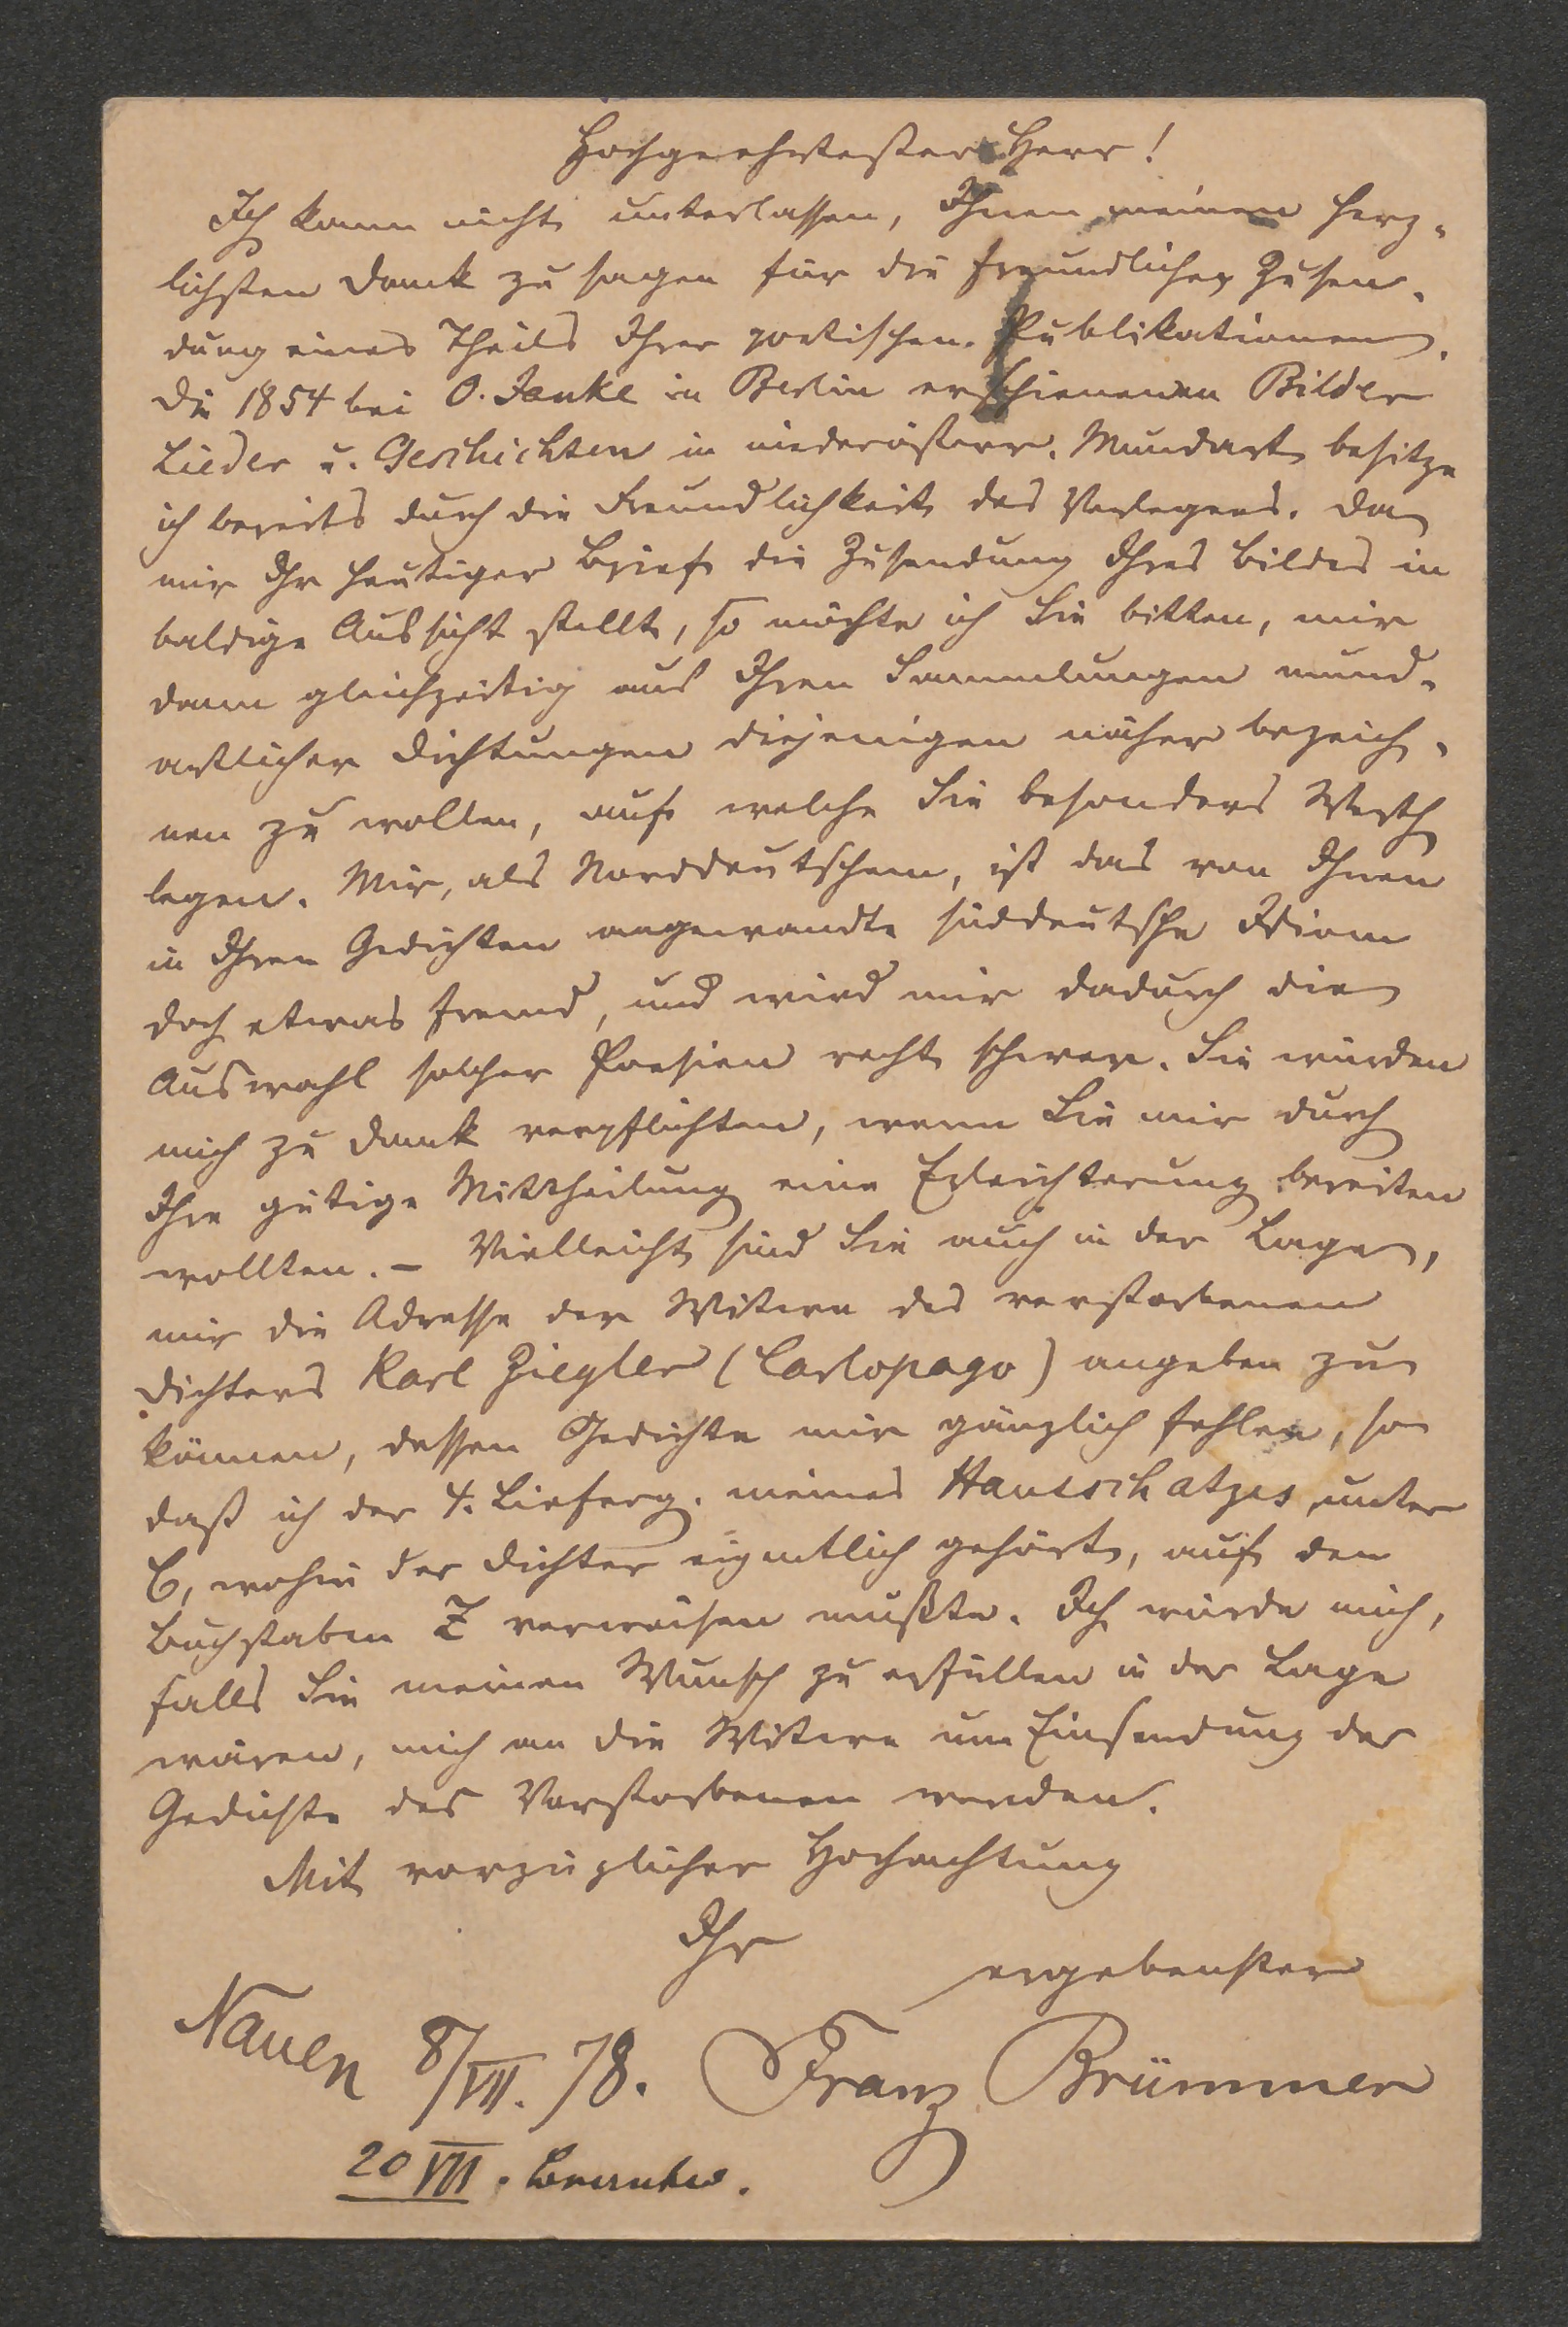 Hochgeehrtester Herr!
Ich kann nicht unterlassen, Ihnen meinen herz-
lichsten Dank zu sagen für die freundliche Zusen-
dung eines Theils Ihrer poetischen Publikationen.
Die 1854 bei O. Janke in Berlin erschienenen Bilder
Lieder u. Geschichten in niederösterr. Mundart besitze
ich bereits durch die Freundlichkeit des Verlegers. Da
mir Ihr heutiger Brief die Zusendung Ihres Bildes in
baldige Aussicht stellt, so möchte ich Sie bitten, mir
dann gleichzeitig aus Ihren Sammlungen mund-
artlicher Dichtungen diejenigen näher bezeich-
nen zu wollen, auf welche Sie besonders Werth
legen. Mir, als Norddeutschem, ist das von Ihnen
in Ihren Gedichten angewandte süddeutsche Idiom
doch etwas fremd, und wird mir dadurch die
Auswahl solcher Poesien recht schwer. Sie würden
mich zu Dank verpflichten, wenn Sie mir durch
Ihre gütige Mittheilung eine Erleichterung bereiten
wollten. – Vielleicht sind Sie auch in der Lage,
mir die Adresse der Witwe des verstorbenen
Dichters Karl Ziegler (Carlopago) angeben zu
können, dessen Gedichte mir gänzlich fehlen, so
daß ich der 4. Lieferg. meines Hausschatzes unter
C, wohin der Dichter eigentlich gehört, auf den
Buchstaben Z verweisen mußte. Ich würde mich,
falls Sie meinen Wunsch zu erfüllen in der Lage
wären, mich an die Witwe um Einsendung der
Gedichte des Verstorbenen wenden.
Mit vorzüglicher Hochachtung
Ihr
ergebenster
Nauen 8/VII. 78. Franz Brümmer
20 VII.